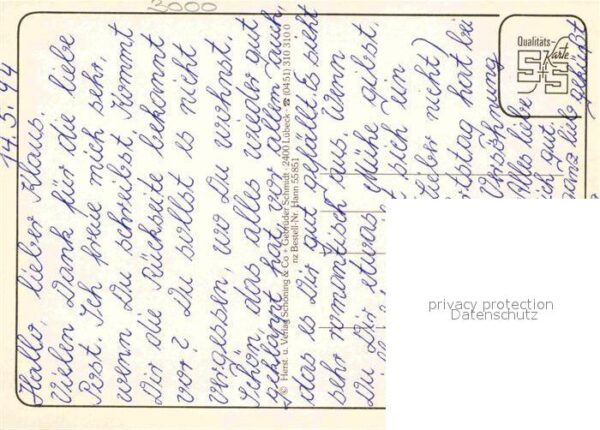 14.5.94
3000
Hallo, lieber Klaus.
Vielen Dank für die liebe
Post. Ich freue mich sehr,
wenn Du schreibst. Kommt
Dir die Rückseite bekannt
vor? Du sollst es nicht
vergessen, wo Du wohnst.
Schön, das alles wieder gut
geklappt hat, vor allem auch,
das es Dir gut gefällt. Es sieht
sehr romantisch aus. Wenn
Du Dir etwas Mühe gibst,
sich Jun
lieber nicht)
hat bei
Versöhnung
Alles liebe
Dich Gut.
ganz lieb gegrüßt
© Herst. u. Verlag Schöning & Co + Gebrüder Schmidt · 2400 Lübeck · ☎ (04 51) 310 310 0
nz Bestell-Nr. Hann 55851
Qualitäts-
Karte
S+S
privacy protection
Datenschutz